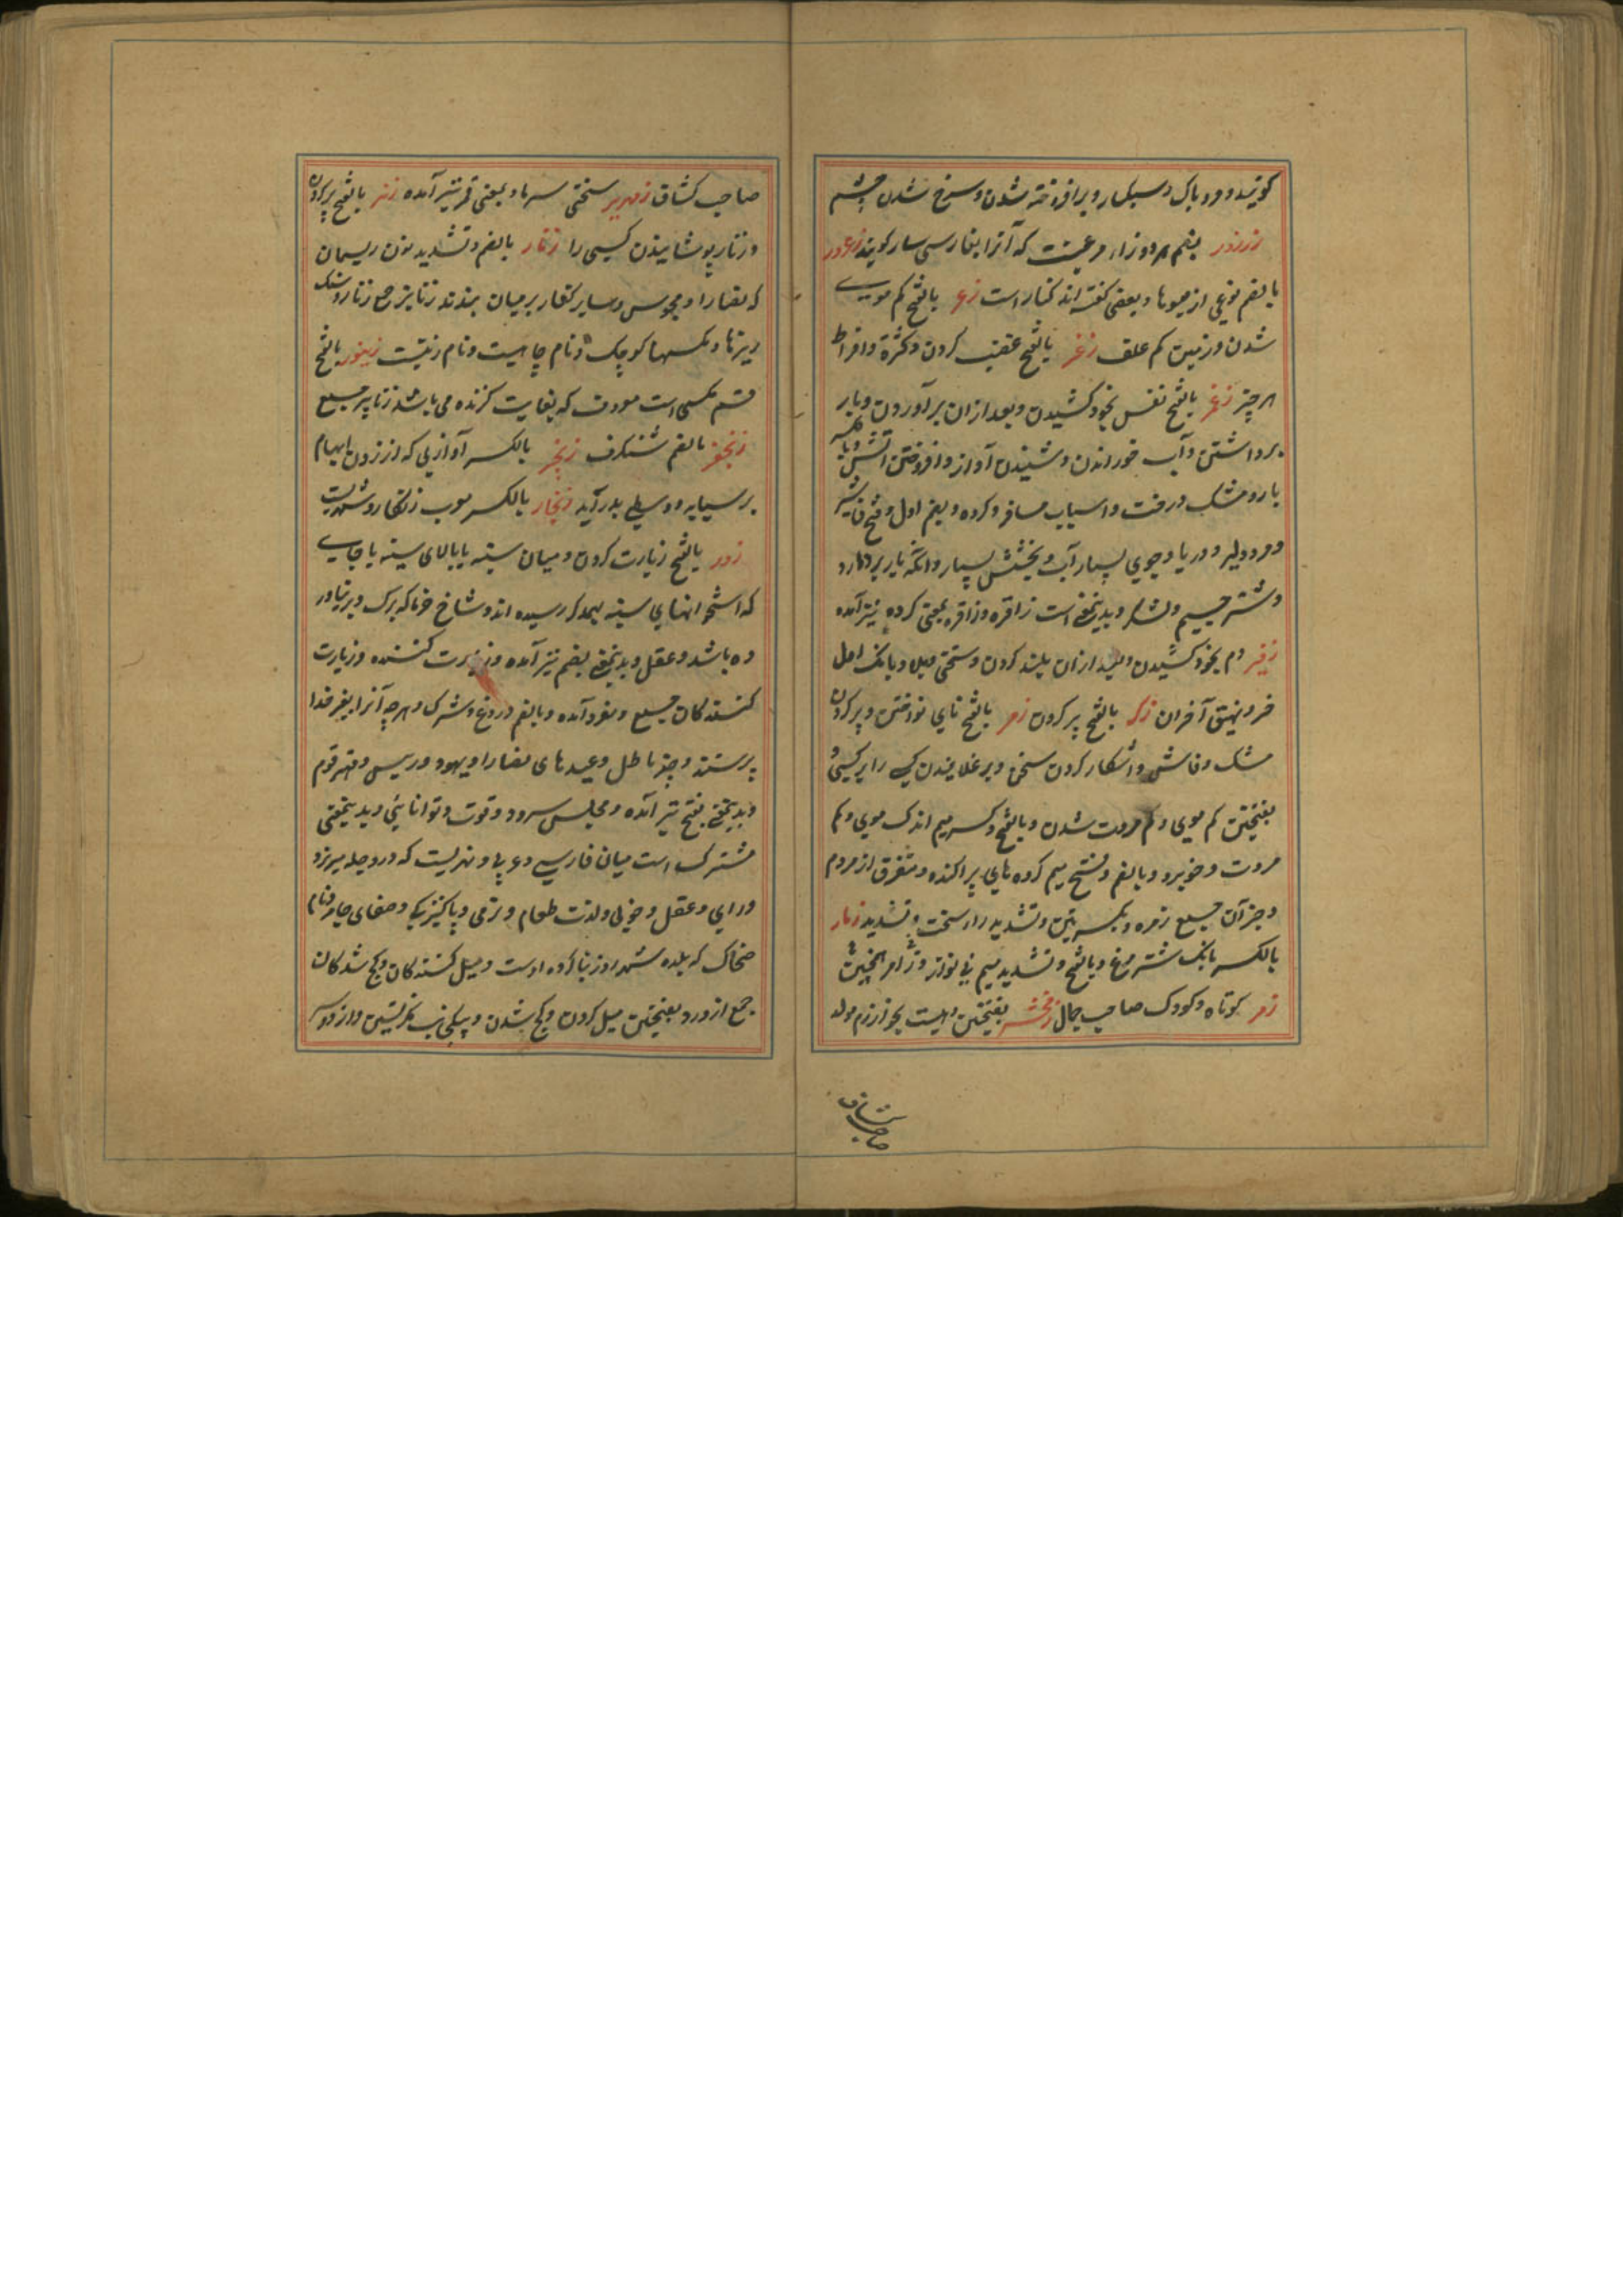 گویند و مرد باک و سبکسار و برافروخته شدن و سرخ شدن چشم
زرزور بضم هر دو زاء مرغیست که آنرا بفارسی سار گویند زعرور
بالضم نوعی از میوها و بعضی گفته اند کنار است زعر بالفتح کم مویی
شدن و زمین کم علف زغر بالفتح غصب کردن و کثرة و افراط
هر چیز زفر بالفتح نفس بخود کشیدن و بعد از ان برآوردن و بار
برداشتن و آب خوراندن و شنیدن آواز و افروختن آتش و بالکسر
بار و مشک و رخت و اسباب مسافر و کرده و بضم اول و فتح فا شیر
و مرد دلیر و دریا و جوی بسیار آب و بخشش بسیار و آنکه بار بردارد
و شتر جسیم و لشکر و بدینمعنی است زافره و زافره بمعنی کرده نیز آمده
زفیر دم بخود کشیدن و بعد ازان بلند کردن و سختی و بلا و بانک اول
خر و نهیق آخر ان زکر بالفتح پر کردن زمر بالفتح نای نواختن و پر کردن
مشک و فاش و آشکار کردن سخن و برغلانیدن کسی را بر کسی و
بفتحتین کم موی و کم مروت شدن و بالفتح و کسر میم اندک موی و کم
مروت و خوبرو و بالضم و فتح میم کروه های پراکنده و متفرق از مردم
و جز آن جمع زمره و بکسرتین و تشدید راء سخت و شدید زمار
بالکسر بانک شتر مرغ و بالفتح و تشدید میم نی نواز و زامر همچنین
زمر کوتاه و کودک صاحب جمال زمخشر بفتحتین دهیست بخوارزم مولد
صاحب کشاف
صاحب کشاف زمهریر سختی سرما و بمعنی قمر نیز آمده زنر بالفتح پر کردن
و زنار پوشانیدن کسی را زنار بالضم و تشدید نون ریسمان
که نصارا و مجوس و سایر کفار بر میان بندند زنانیر جمع زنار و سنک
ریزها و مکسها کوچک و نام چاهیست و نام زمینیست زنبور بالفتح
قسم مکسی است معروف که بغایت گزنده می باشد زنابیر جمع
زنجفر بالضم شنکرف زنجر بالکسر آوازیی که از زدن ابهام
بر سبابه و وسطی بدر آید زنجار بالکسر معرب زنکار و شهریست
زور بالفتح زیارت کردن و میان سینه یا بالای سینه یا جایی
که استخوانهای سینه بیکدیگر رسیده اند و شاخ خرما که برک و بر نیاورده
ده باشد و عقل و بدینمعنی بضم نیز آمده و زیارت کننده و زیارت
کنندکان جمع و مفرد آمده و بالضم دروغ و شرک و هر چه آنرا بغیر خدا
پرستند و چیز باطل و عیدهای نصارا و یهود و رییس و مهتر قوم
و بدینمعنی بفتح نیز آمده و مجلس سرود و قوت و توانائی و بدینمعنی
مشترک است میان فارسی و عربی و نهریست که در دجله میریزد
و رای و عقل و خوبی و لذت طعام و نرمی و پاکیزگی و صفای جامه و نام
ضحاک که بلده شهر روز بنا کرده اوست و میل کنندکان و کج شدکان
جمع ازور و بفتحتین میل کردن و کج شدن و بیکجانب نگریستن